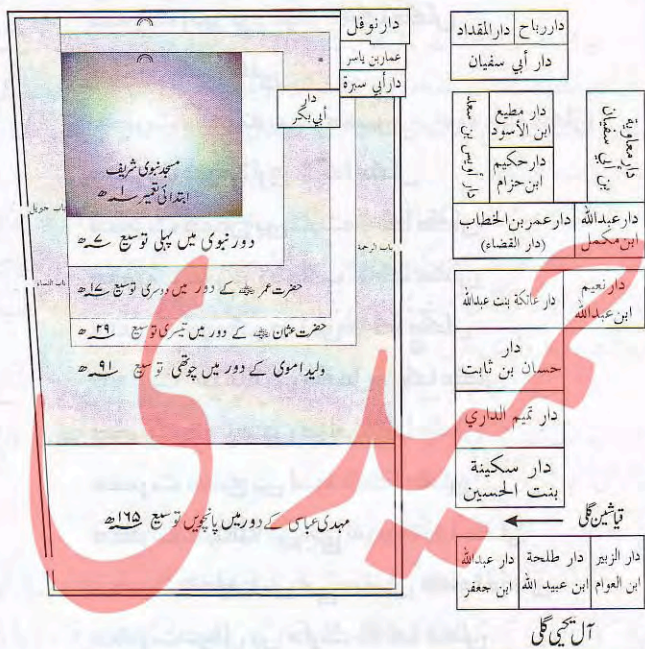 دار نوفل
عمار بن ياسر
دار أبي سبرة
دار
أبي بكر
مسجد نبوی شریف
ابتدائی تعمیر ۱ھ
دور نبوی میں پہلی توسیع ۷ھ
حضرت عمر ﷛ کے دور میں دوسری توسیع ۱۷ھ
حضرت عثمان ﷛ کے دور میں تیسری توسیع ۲۹ھ
ولید اموی کے دور میں چوتھی توسیع ۹۱ھ
مہدی عباسی کے دور میں پانچویں توسیع ۱۶۵ھ
باب جبریل
باب النساء
باب الرحمة
دار رباح
دار المقداد
دار أبي سفيان
دار معاوية
بن أبي سفيان
دار مطيع
ابن الأسود
دار حكيم
ابن حزام
دار أويس بن سعد
دار عبدالله
ابن مكمل
دار عمر بن الخطاب
(دار القضاء)
دار نعيم
ابن عبدالله
دار عاتكة بنت عبدالله
دار
حسان بن ثابت
دار تميم الداري
دار سكينة
بنت الحسين
قباشین گلی
دار الزبير
ابن العوام
دار طلحة
ابن عبيد الله
دار عبدالله
ابن جعفر
آل یحییٰ گلی
حمیدی